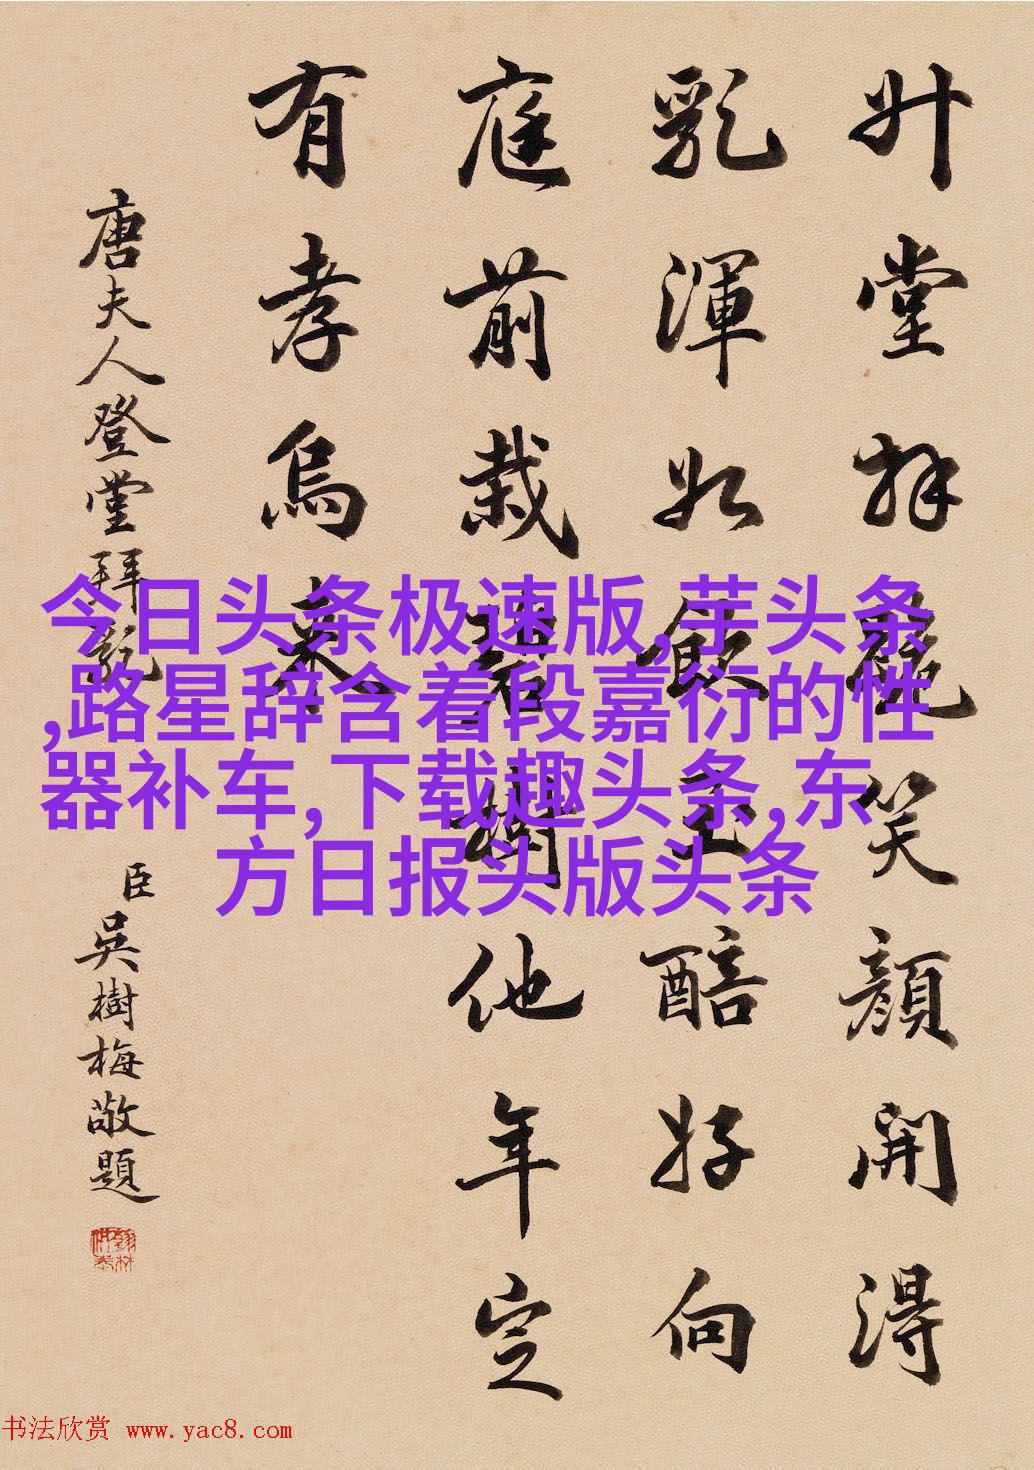 升堂拜笑顏開得
乳渾如飲玉醅好向
庭前栽碧樹他年定
有孝烏來
唐夫人登堂拜乳
臣吳樹梅敬題
今日头条极速版,芋头条
,路星辞含着段嘉衍的性
器补车,下载趣头条,东
方日报头版头条
书法欣赏 www.yac8.com